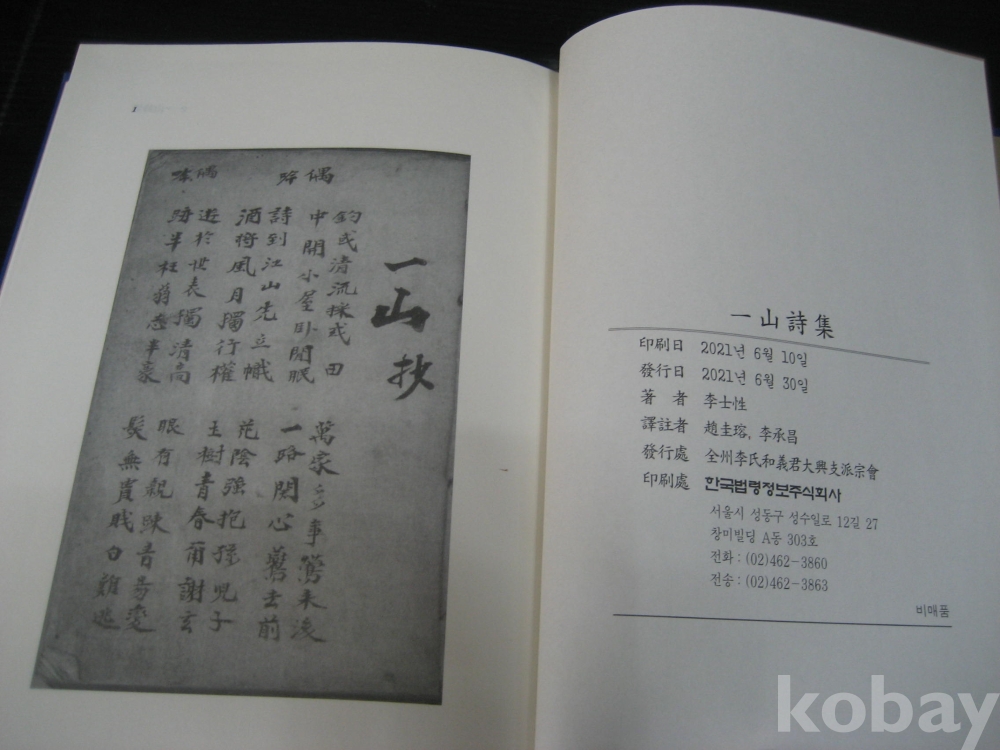 1
一山抄
偶
釣或清流採或田
中開小屋臥閒眠
詩到江山先立幟
酒將風月獨行權
萬家多事鶯
一路関心去前
花陰強抱孫兒子
玉樹青春爾謝玄
偶
遊於世表獨清高
跡半狂态半豪
眼有親踈音号変
髮無貴賤白難逃
一山詩集
印刷日 2021년 6월 10일
發行日 2021년 6월 30일
著 者 李士性
譯註者 趙圭瑢, 李承昌
發行處 全州李氏和義君大興支派宗會
印刷處 한국법령정보주식회사
서울시 성동구 성수일로 12길 27
창미빌딩 A동 303호
전화 : (02)462-3860
전송 : (02)462-3863
비매품
kobay